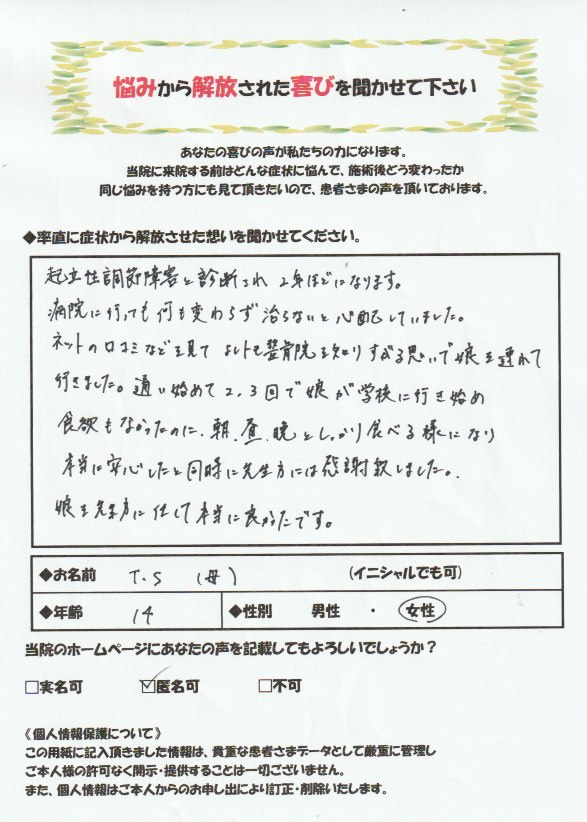 悩みから解放された喜びを聞かせて下さい
あなたの喜びの声が私たちの力になります。
当院に来院する前はどんな症状に悩んで、施術後どう変わったか
同じ悩みを持つ方にも見て頂きたいので、患者さまの声を頂いております。
◆率直に症状から解放させた想いを聞かせてください。
起立性調節障害と診断され 2年ほどになります。
病院に行っても何も変わらず治らないと心配していました。
ネットの口コミなどを見て よしとも整骨院を知りすがる思いで娘を連れて
行きました。通い始めて2.3回で娘が学校に行き始め
食欲もなかったのに、朝.昼.晩としっかり食べる様になり
本当に安心したと同時に先生方には感謝致しました。
娘を先生方に任して本当に良かったです。
◆お名前 T.S (母) (イニシャルでも可)
◆年齢 14 ◆性別 男性 ・ 女性
当院のホームページにあなたの声を記載してもよろしいでしょうか？
□実名可 ☑匿名可 □不可
《個人情報保護について》
この用紙に記入頂きました情報は、貴重な患者さまデータとして厳重に管理し
ご本人様の許可なく開示・提供することは一切ございません。
また、個人情報はご本人からのお申し出により訂正・削除いたします。